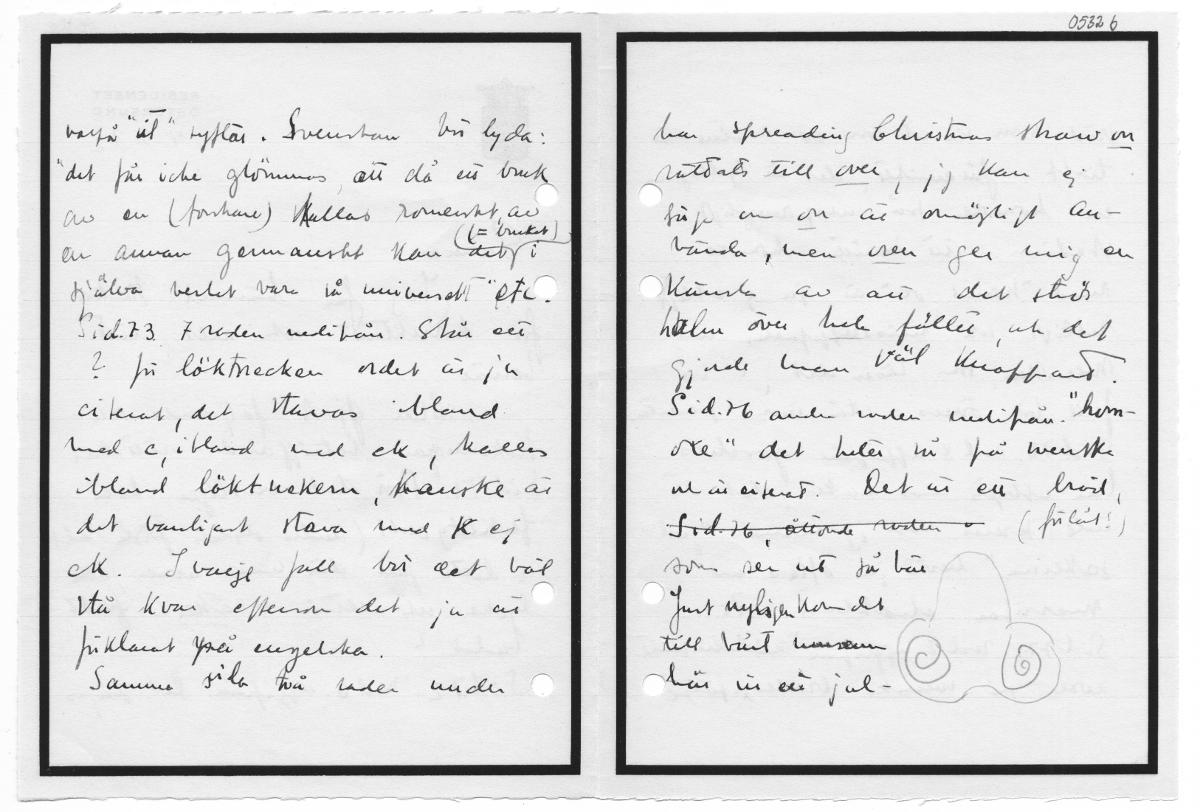 05326
varpå "it" syftar. Svenskan bör lyda:
"det får icke glömmas, att då ett bruk
av en (forskare) kallas romerskt, av
en annan germanskt kan det (= bruket) i
själva verket vara så universellt" etc.
Sid. 73, 7 raden nedifrån. Står ett
? för löktnecken ordet är ju
citerat, det stavas ibland
med c, ibland med ck, kallas
ibland löktnekern, kanske är
det vanligast stava med k ej
ck. I varje fall bör det väl
stå kvar eftersom det ju är
förklarat på engelska.
Samma sida två rader under
har spreading Christmas straw on
rättats till over, jag kan ej
säga om on är omöjligt an-
vända, men over ger mig en
känsla av att det strös
halm över hela fältet, och det
gjorde man väl knappast.
Sid. 76 andra raden nedifrån. "horn-
oxe" det heter så på svenska
och är citerat. Det är ett bröd,
Sid. 76, åttonde raden (förlåt!)
som ser ut så här
Just nyligen kom det
till vårt museum
här ur ett jul-